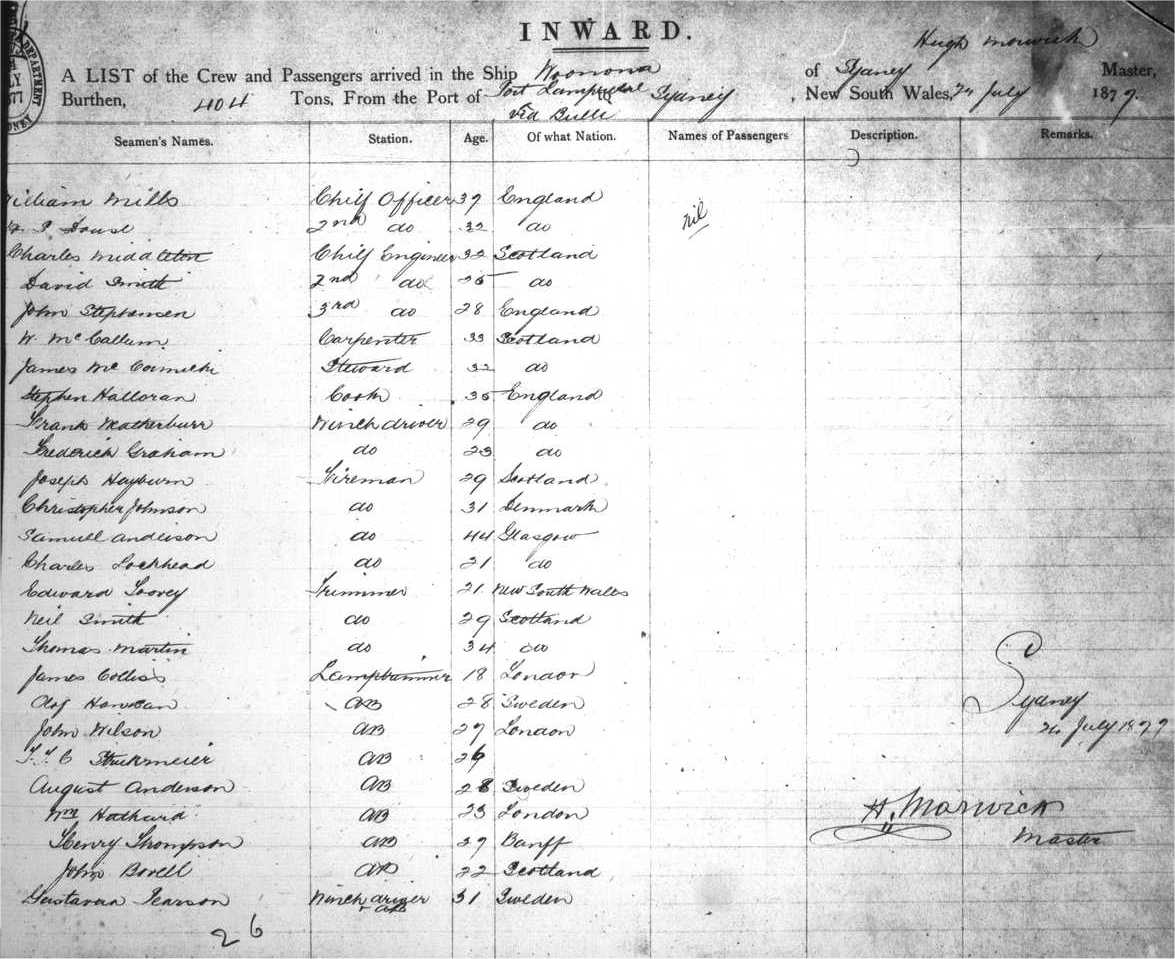 INWARD.
Hugh Morwick
A LIST of the Crew and Passengers arrived in the Ship Woonona of Sydney Master,
Burthen, 404 Tons, From the Port of Port Sydney , New South Wales, July 1877.
via Bulli
Seamen's Names. Station. Age. Of what Nation. Names of Passengers Description. Remarks.
William Mills Chief Officer 37 England
2nd do 32 do nil
Charles Middleton Chief Engineer 32 Scotland
David Smith 2nd do 25 do
John Stephensen 3rd do 28 England
W. McCallum Carpenter 33 Scotland
James McCormick Steward 32 do
Stephen Halloran Cook 35 England
Frank Weatherburr Winch driver 29 do
Frederick Graham do 23 do
Joseph Hayburn Fireman 29 Scotland
Christopher Johnson do 31 Denmark
Samuel Anderson do 44 Glasgow
Charles Lockhead do 21 do
Edward Toovey Trimmer 21 New South Wales
Neil Smith do 29 Scotland
Thomas Martin do 34 do
James Colliss Lamptrimmer 18 London
Olof AB 28 Sweden
Sydney
John Wilson AB 27 London
July 1877
AB 26
August Anderson AB 28 Sweden
Wm AB 23 London
H. Morwick
Henry Thompson AB 27 Banff
Master
John Bovell AB 22 Scotland
Pearson Winch driver 31 Sweden
+ AB
26